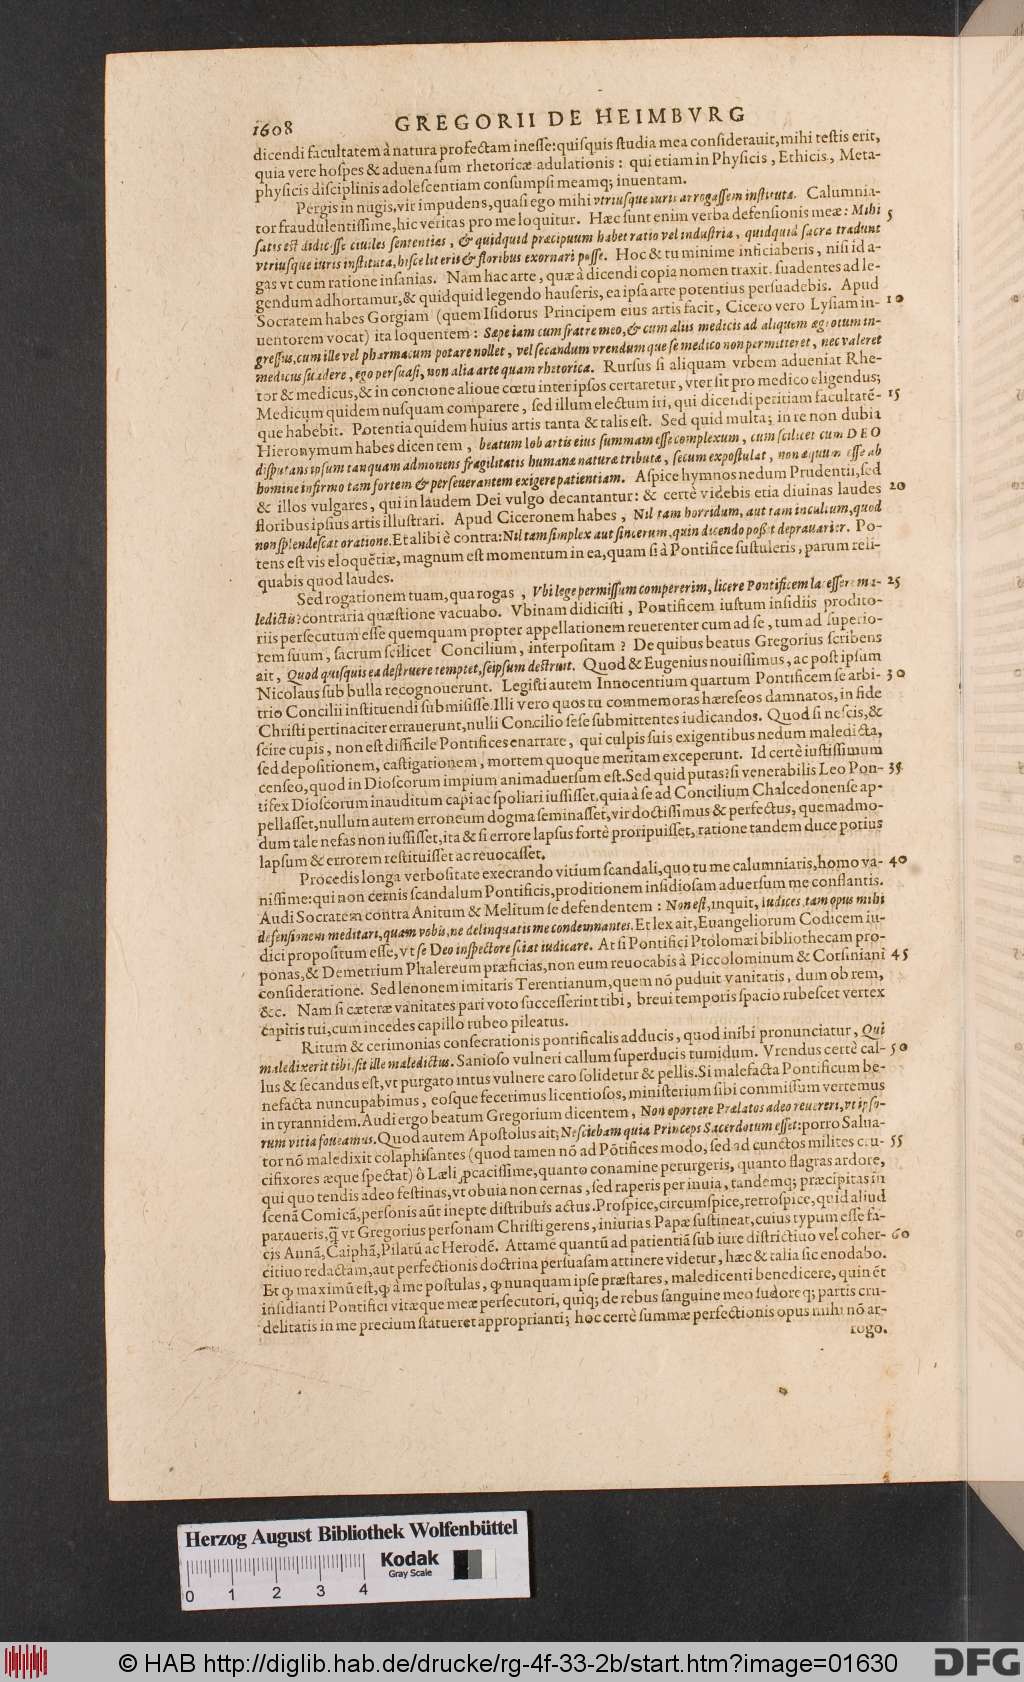 1608 GREGORII DE HEIMBVRG
dicendi facultatem à natura profectam inesse: quisquis studia mea considerauit, mihi testis erit,
quia vere hospes & aduena sum rhetoricæ adulationis: qui etiam in Physicis, Ethicis, Meta-
physicis disciplinis adolescentiam consumpsi meamq; iuuentam.
Pergis in nugis, vir impudens, quasi ego mihi vtriusque iuris arrogassem instituta. Calumnia-
tor fraudulentissime, hic veritas pro me loquitur. Hæc sunt enim verba defensionis meæ: Mihi 5
satis est didicisse ciuiles sententias, & quidquid præcipuum habet ratio vel industria, quidquid sacra tradunt
vtriusque iuris instituta, hisce literis & floribus exornari posse. Hoc & tu minime inficiaberis, nisi id a-
gas vt cum ratione insanias. Nam hac arte, quæ à dicendi copia nomen traxit, suadentes ad le-
gendum adhortamur, & quidquid legendo hauseris, ea ipsa arte potentius persuadebis. Apud
Socratem habes Gorgiam (quem Isidotus Principem eius artis facit, Cicero vero Lysiam in- 10
uentorem vocat) ita loquentem: Sæpe iam cum fratre meo, & cum aliis medicis ad aliquem ægrotum in-
gressus, cum ille vel pharmacum potare nollet, vel secandum vrendumque se medico non permitteret, nec valeret
medicus suadere, ego persuasi, non alia arte quam rhetorica. Rursus si aliquam vrbem adueniat Rhe-
tor & medicus, & in concione alioue cœtu inter ipsos certaretur, vter sit pro medico eligendus;
Medicum quidem nusquam comparere, sed illum electum iri, qui dicendi peritiam facultatē- 15
que habebit. Potentia quidem huius artis tanta & talis est. Sed quid multa; in re non dubia
Hieronymum habes dicentem, beatum Iob artis eius summam esse complexum, cum scilicet cum DEO
disputans ipsum tanquam admonens fragilitatis humanæ naturæ tributæ, secum expostulat, non æquum esse ab
homine infirmo tam fortem & perseuerantem exigere patientiam. Aspice hymnos nedum Prudentii, sed
& illos vulgares, qui in laudem Dei vulgo decantantur: & certè videbis etiā diuinas laudes 20
floribus ipsius artis illustrari. Apud Ciceronem habes, Nil tam horridum, aut tam incultum, quod
non splendescat oratione. Et alibi è contra: Nil tam simplex aut sincerum, quin dicendo possit deprauarier. Po-
tens est vis eloquētiæ, magnum est momentum in ea, quam si à Pontifice sustuleris, parum reli-
quabis quod laudes.
Sed rogationem tuam, qua rogas, Vbi lege permissum compererim, licere Pontificem lacessere ma- 25
ledictis? contraria quæstione vacuabo. Vbinam didicisti, Pontificem iustum insidiis prodito-
riis persecutum esse quemquam propter appellationem reuerenter cum ad se, tum ad superio-
rem suum, sacrum scilicet Concilium, interpositam? De quibus beatus Gregorius scribens
ait, Quod quisquis ea destruere temptet, seipsum destruit. Quod & Eugenius nouissimus, ac post ipsum
Nicolaus sub bulla recognouerunt. Legisti autem Innocentium quartum Pontificem se arbi- 30
trio Concilii instituendi submisisse. Illi vero quos tu commemoras hæreseos damnatos, in fide
Christi pertinaciter errauerunt, nulli Concilio sese submittentes iudicandos. Quod si nescis, &
scire cupis, non est difficile Pontifices enarrare, qui culpis suis exigentibus nedum maledicta,
sed depositionem, castigationem, mortem quoque meritam exceperunt. Id certè iustissimum
censeo, quod in Dioscorum impium animaduersum est. Sed quid putas? si venerabilis Leo Pon- 35
tifex Dioscorum inauditum capi ac spoliari iussisset, quia à se ad Concilium Chalcedonense ap-
pellasset, nullum autem erroneum dogma seminasset, vir doctissimus & perfectus, quemadmo-
dum tale nefas non iussisset, ita & si errore lapsus fortè proripuisset, ratione tandem duce potius
lapsum & errorem restituisset ac reuocasset.
Procedis longa verbositate execrando vitium scandali, quo tu me calumniaris, homo va- 40
nissime: qui non cernis scandalum Pontificis, proditionem insidiosam aduersum me conflantis.
Audi Socratem contra Anitum & Melitum se defendentem: Non est, inquit, iudices, tam opus mihi
defensionem meditari, quam vobis, ne delinquatis me condemnantes. Et lex ait, Euangeliorum Codicem iu-
dici propositum esse, vt se Deo inspectore sciat iudicare. At si Pontifici Ptolomæi bibliothecam pro-
ponas, & Demetrium Phalereum præficias, non eum reuocabis à Piccolominum & Corsiniani 45
consideratione. Sed lenonem imitaris Terentianum, quem nō puduit vanitatis, dum ob rem,
&c. Nam si cæteræ vanitates pari voto successerint tibi, breui temporis spacio rubescet vertex
capitis tui, cum incedes capillo rubeo pileatus.
Ritum & cerimonias consecrationis pontificalis adducis, quod inibi pronunciatur, Qui
maledixerit tibi, sit ille maledictus. Sanioso vulneri callum superducis tumidum. Vrendus certè cal- 50
lus & secandus est, vt purgato intus vulnere caro solidetur & pellis. Si malefacta Pontificum be-
nefacta nuncupabimus, eosque fecerimus licentiosos, ministerium sibi commissum vertemus
in tyrannidem. Audi ergo beatum Gregorium dicentem, Non oportere Prælatos adeo reuereri, vt ipso-
rum vitia foueamus. Quod autem Apostolus ait; Nesciebam quia Princeps Sacerdotum esset: porro Salua-
tor nō maledixit colaphisantes (quod tamen nō ad Pōtifices modo, sed ad cunctos milites cru- 55
cifixores æque spectat) ô Læli ꝓcacissime, quanto conamine perurgeris, quanto flagras ardore,
qui quo tendis adeo festinas, vt obuia non cernas, sed raperis per inuia, tandemq; præcipitas in
scenā Comicā, personis aūt inepte distribuis actus. Prospice, circumspice, retrospice, quid aliud
paraueris, q̄ vt Gregorius personam Christi gerens, iniurias Papæ sustineat, cuius typum esse fa-
cis Annā, Caiphā, Pilatū ac Herodē. Attamē quantū ad patientiā sub iure districtiuo vel coher- 60
citiuo redactam, aut perfectionis doctrina persuasam attinere videtur, hæc & talia sic enodabo.
Et ꝙ maximū est, ꝙ à me postulas, ꝙ nunquam ipse præstares, maledicenti benedicere, quin ēt
insidianti Pontifici vitæque meæ persecutori, quiq; de rebus sanguine meo sudore q; partis cru-
delitatis in me precium statueret approprianti; hoc certè summæ perfectionis opus mihi nō ar-
rogo.
Herzog August Bibliothek Wolfenbüttel
Kodak
Gray Scale
0 1 2 3 4
© HAB http://diglib.hab.de/drucke/rg-4f-33-2b/start.htm?image=01630
DFG